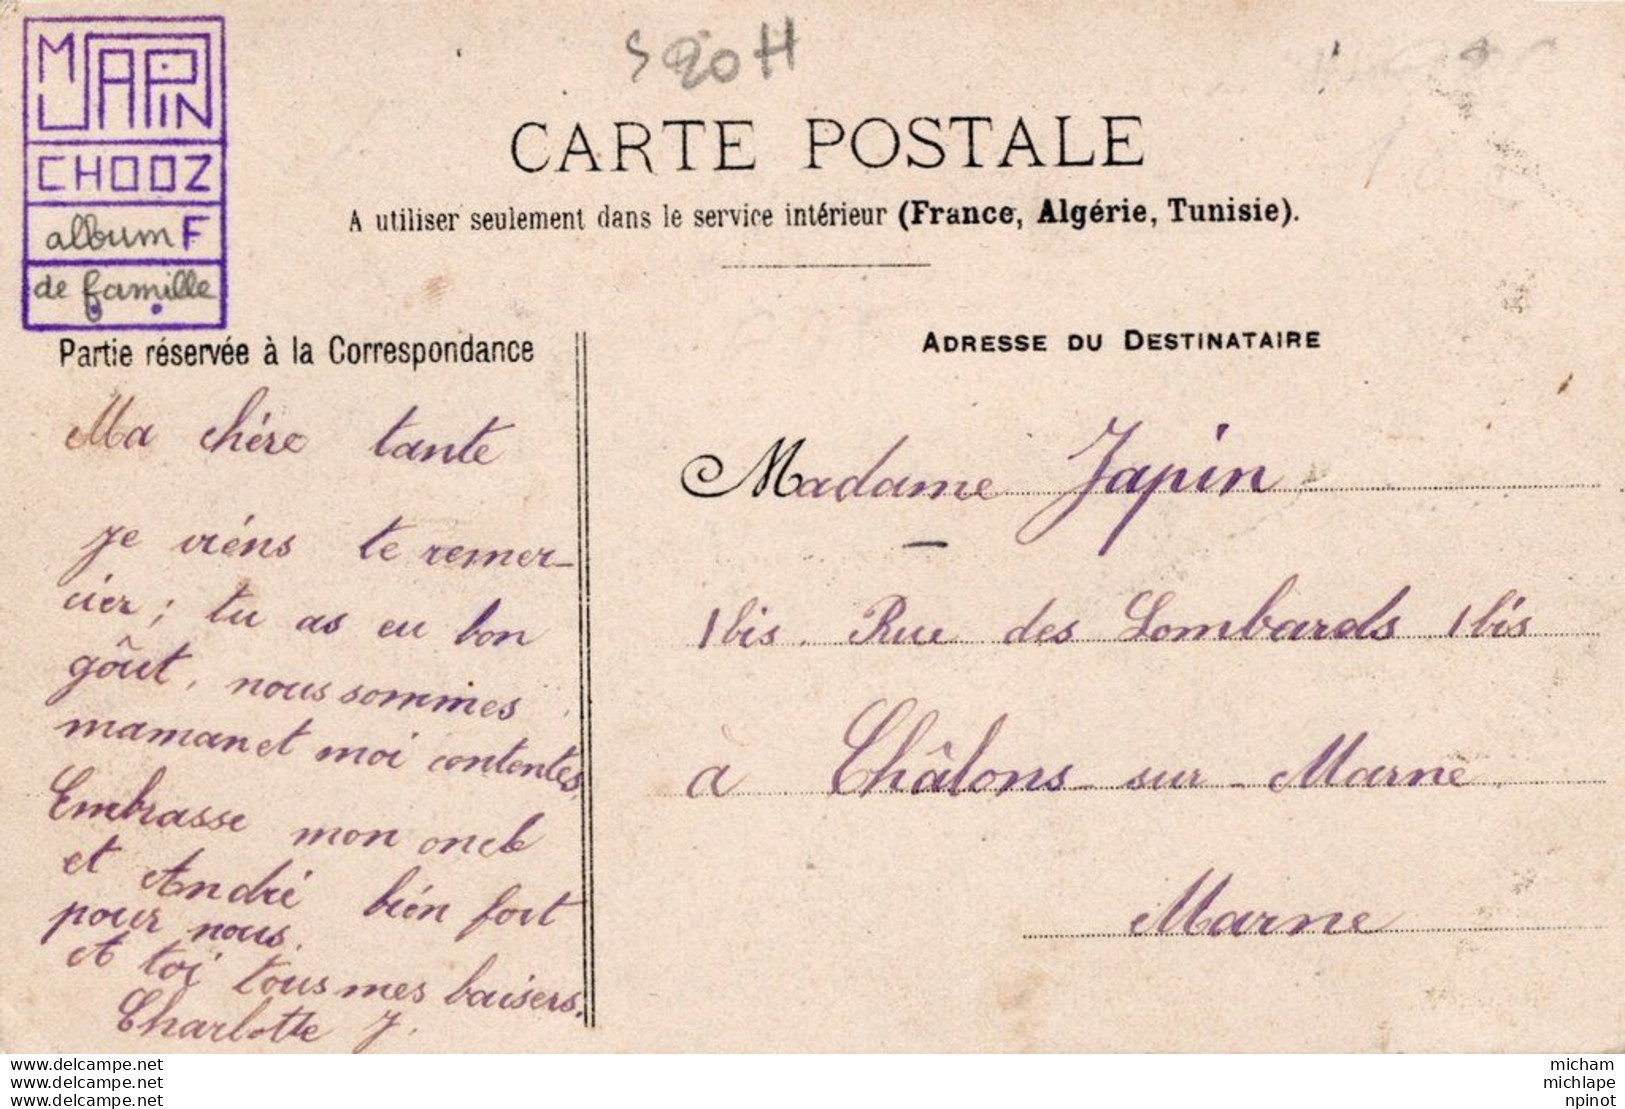 M JAPIN
CHOOZ
album F
de famille
S 20 H
CARTE POSTALE
A utiliser seulement dans le service intérieur (France, Algérie, Tunisie).
Partie réservée à la Correspondance
Ma chére tante
Je viéns te remer-
cier; tu as eu bon
gôut, nous sommes
maman et moi contentes.
Embrasse mon oncle
et André bién fort
pour nous.
A toi tous mes baisers.
Charlotte J.
ADRESSE DU DESTINATAIRE
Madame Japin
1 bis. Rue des Lombards 1 bis
à Châlons-sur-Marne
Marne
www.delcampe.net
www.delcampe.net
www.delcampe.net
micham
michlape
npinot